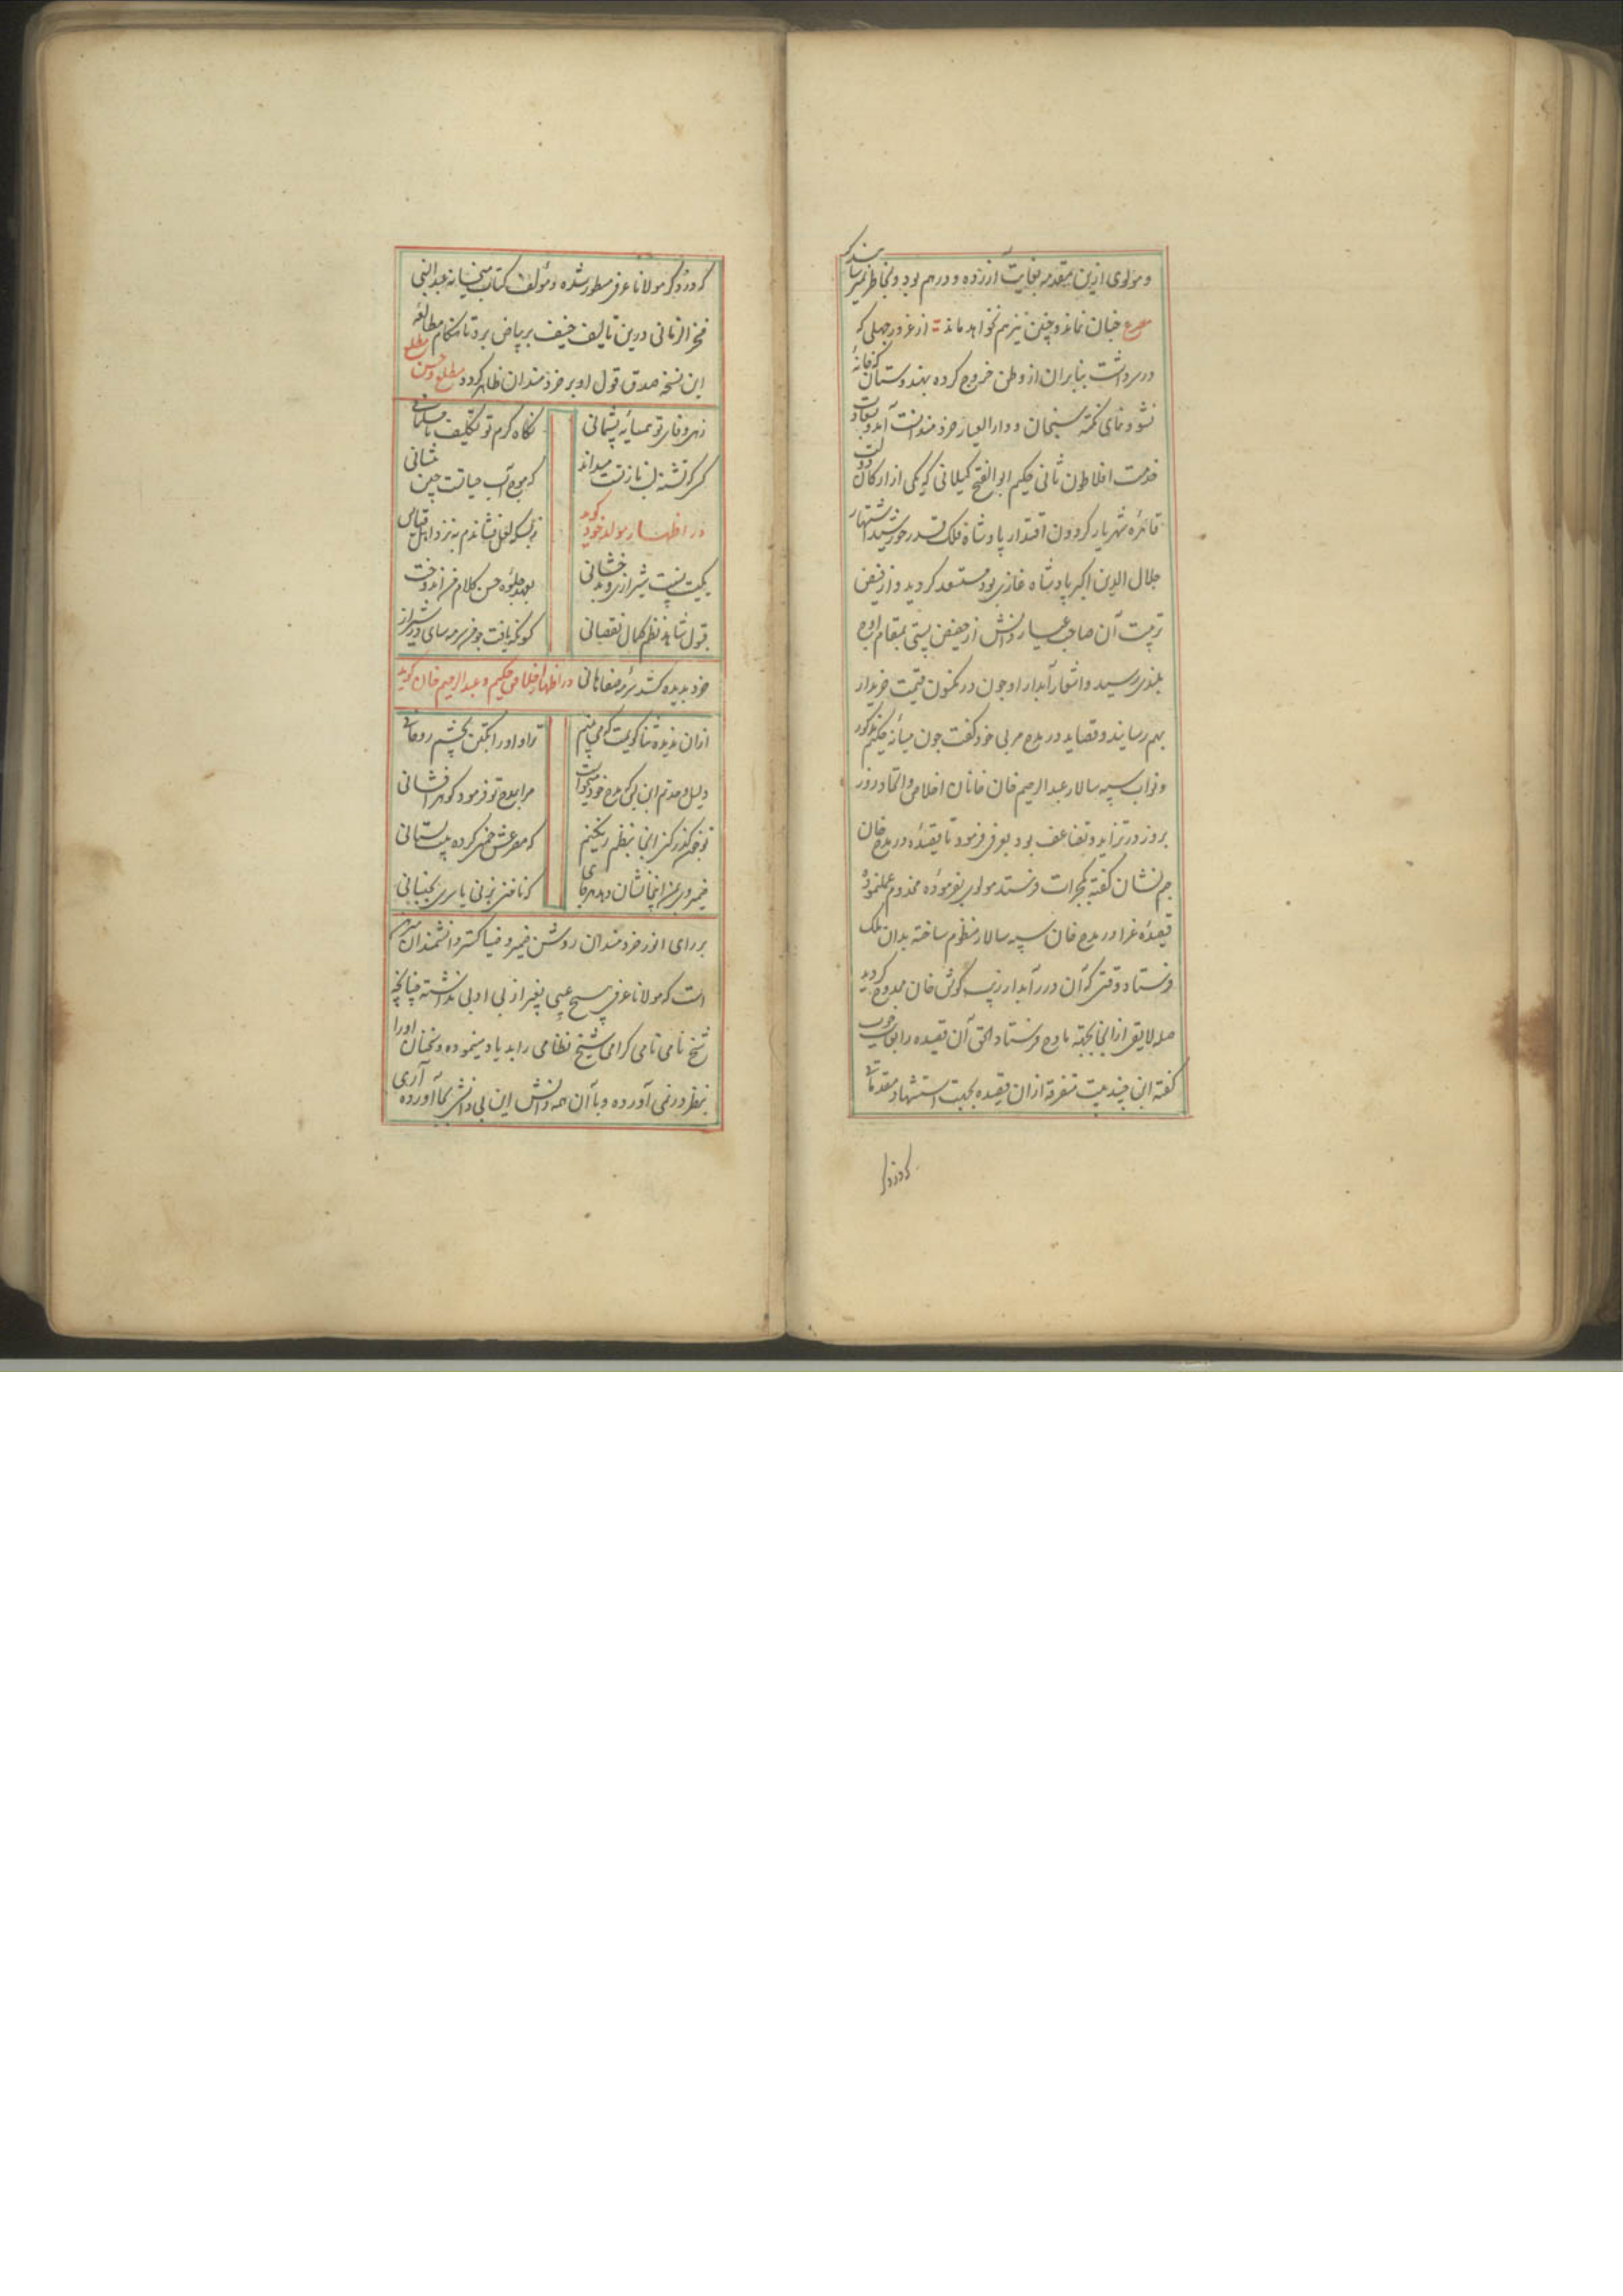 و مولوی ازین مقدمه بغایت آزرده و درهم بود و بخاطر میرسانید که
مصرع چنان نماند و چنین نیز هم نخواهد ماند از غرور جهلی که
در سر داشت بنابران از وطن خروج کرده بهندوستان که خانهٔ
نشو و نمای نکته سنجان و دارالعیار خردمندانست آمد و بسعادت
خدمت افلاطون ثانی حکیم ابوالفتح گیلانی که یکی از ارکان دولت
قاهرهٔ شهریار گردون اقتدار پادشاه فلک قدر خورشید اشتهار
جلال الدین اکبر پادشاه غازی بود مستسعد گردید و از فیض
تربیت آن صاحب عیار دانش از حضیض پستی بمقام اوج
بلندی رسید و اشعار آبدار او چون در مکنون قیمت خریدار
بهم رسانید و قصاید در مدح مربی خود گفت چون میانهٔ حکیم مذکور
و نواب سپه سالار عبدالرحیم خان خانان اخلاص و اتحاد روز
بروز در تزاید و تضاعف بود بعرفی فرمود تا قصیدهٔ در مدح خان
جم نشان گفته بگجرات فرستد مولوی بفرمودهٔ مخدوم عمل نموده
قصیدهٔ غرا در مدح خان سپه سالار منظوم ساخته بدان ملک
فرستاد وقتی که آن درر آبدار زیب گوش خان ممدوح گردید
صلهٔ لایق از انجا بجهة مادح فرستاد الحق آن قصیده را بغایت خوب
گفته این چند بیت متفرقه از ان قصیده بجهت استشهاد مقدماتی
که در ذکر
که در ذکر مولانا عرفی مسطور شده و مؤلف کتاب میخانه عبدالنبی
فخر الزمانی درین تالیف حنیف بر بیاض برد تا هنگام مطالعهٔ
این نسخه صدق قول او بر خردمندان ظاهر گردد مطلع و حسن مطلع
زهی وفای تو همسایهٔ پشیمانی نگاه گرم تو تکلیف نامسلمانی
کسی که تشنه لب نازتست میداند که موج آب حیاتست چین پیشانی
در اظهار مولد خود گوید ز بسکه لعل فشاندم به نزد اهل قیاس
یکیست نسبت شیرازی و بدخشانی بعهد جلوهٔ حسن کلام من اندوخت
قبول شاهد نظم کمال نقصانی کنونکه یافت چو من سرمه سای در شیراز
خرد بدیده کشد سرمهٔ صفاهانی در اظهار اخلاص حکیم و عبدالرحیم خان گوید
ازان ندیده ثنا گویمت که می بینم ترا و او را یکتن بچشم روحانی
دلیل وحدتم این بس که مدح خود میخواست مرا بمدح تو فرمود گوهر افشانی
که مصرعش خمی کرده بیستانی
که ناخنی بزنی یا سری بجنبانی
بر رای انور خردمندان روشن ضمیر و ضیا گستر دانشمندان مبرهن
است که مولانا عرفی هیچ عیبی بغیر از بی ادبی نداشته چنانچه
شیخ نامی نامی گرامی شیخ نظامی را بد یاد مینموده و سخنان او را
بنظر در نمی آورده و با آن همه دانش این بی دانشی بجا آورده آری